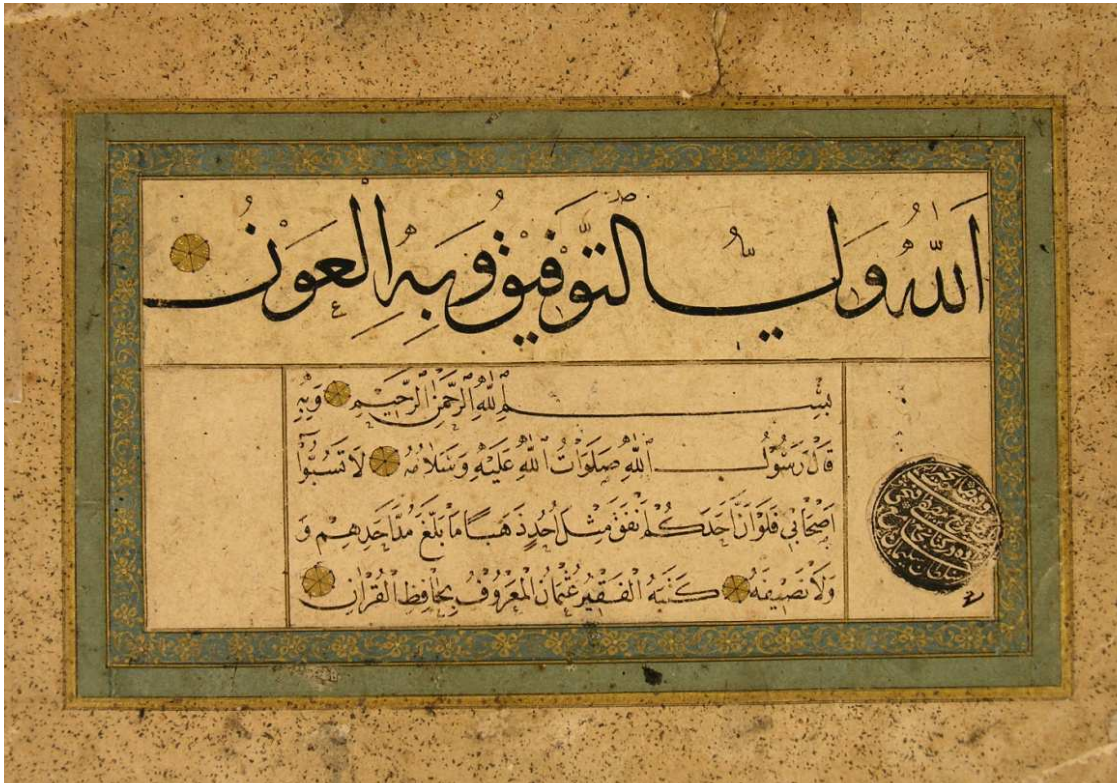 اَللّٰهُ وَلِيُّ التَّوْفِيقُ وَبِهِ الْعَوْنُ
بِسْمِ اللّٰهِ الرَّحْمٰنِ الرَّحِيمِ وَبِهِ
قَالَ رَسُولُ اللّٰهِ صَلَوَاتُ اللّٰهِ عَلَيْهِ وَسَلَامُهُ لَا تَسُبُّوا
اَصْحَابِي فَلَوْ اَنَّ اَحَدَكُمْ اَنْفَقَ مِثْلَ اُحُدٍ ذَهَبًا مَا بَلَغَ مُدَّ اَحَدِهِمْ وَ
وَلَا نَصِيفَهُ كَتَبَهُ الْفَقِيرُ عُثْمَانُ الْمَعْرُوفُ بِحَافِظِ الْقُرْاٰنِ